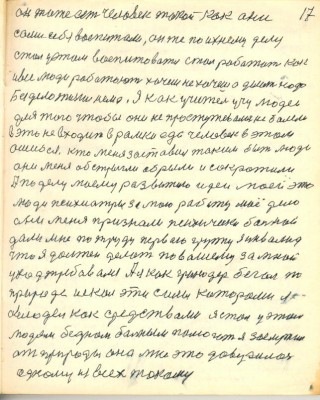 он тоже ест человек такой как они 17
сами себя воспитали, он же по ихнему делу
стал у этом воспитовать стал работать как
и все люди работают хочеш не хочеш а делать надо
Я как учител учу людей
для того чтобы они не простуживалис не болели
а это не входит в рамки одо человек в этом
ошибся, кто меня заставил таким быть люди
они меня обстригли обрили и сократили
А по делу моему развитию идеи моей это
люди психиатры за мою работу мой дело
они меня признали психически больной
дали мне по труду первою группу инвалид
что я должен делат по вашему за мной
уход требовался А я как грамодер бегал по
природе искал эти силы которыми
владел как средствами я стал у этом
людям бедном больным помогат я заслужил
от природы она мне это доверилас
одному из всех такому